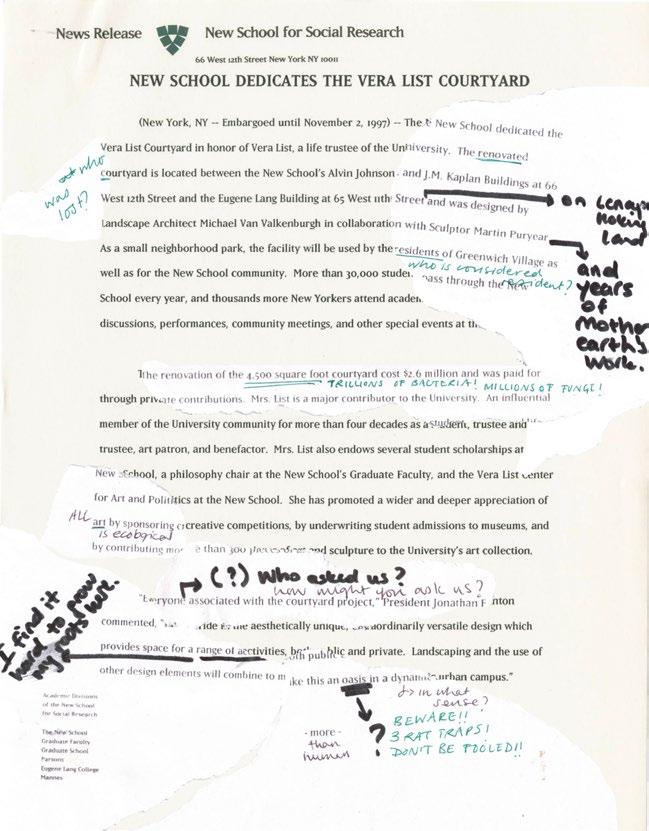 News Release
New School for Social Research
66 West 12th Street New York NY 10011
NEW SCHOOL DEDICATES THE VERA LIST COURTYARD
(New York, NY -- Embargoed until November 2, 1997) -- The New School dedicated the
Vera List Courtyard in honor of Vera List, a life trustee of the University. The renovated
at who was lost?
courtyard is located between the New School's Alvin Johnson and J.M. Kaplan Buildings at 66
West 12th Street and the Eugene Lang Building at 65 West 11th Street and was designed by
on Lenape Hoking Land
Landscape Architect Michael Van Valkenburgh in collaboration with Sculptor Martin Puryear
and years of Mother earth's work.
As a small neighborhood park, the facility will be used by the residents of Greenwich Village as
who is considered resident?
well as for the New School community. More than 30,000 studen pass through the New
School every year, and thousands more New Yorkers attend academ
discussions, performances, community meetings, and other special events at th
The renovation of the 4,500 square foot courtyard cost $2.6 million and was paid for
TRILLIONS OF BACTERIA! MILLIONS OF FUNGI!
through private contributions. Mrs. List is a major contributor to the University. An influential
member of the University community for more than four decades as a student, trustee and life
trustee, art patron, and benefactor. Mrs. List also endows several student scholarships at
New School, a philosophy chair at the New School's Graduate Faculty, and the Vera List Center
for Art and Politics at the New School. She has promoted a wider and deeper appreciation of
ALL
art by sponsoring creative competitions, by underwriting student admissions to museums, and
is ecological
by contributing more than 300 and sculpture to the University's art collection.
(?) Who asked us?
how might you ask us?
"Everyone associated with the courtyard project," President Jonathan F nton
commented, " ride in the aesthetically unique, extraordinarily versatile design which
provides space for a range of activities, both public and private. Landscaping and the use of
other design elements will combine to make this an oasis in a dynamic urban campus."
I find it hard to grow my roots here.
in what sense?
? BEWARE!!
3 RAT TRAPS!
DON'T BE FOOLED!!
- more -
than human
Academic Divisions
of the New School
for Social Research
The New School
Graduate Faculty
Graduate School
Parsons
Eugene Lang College
Mannes